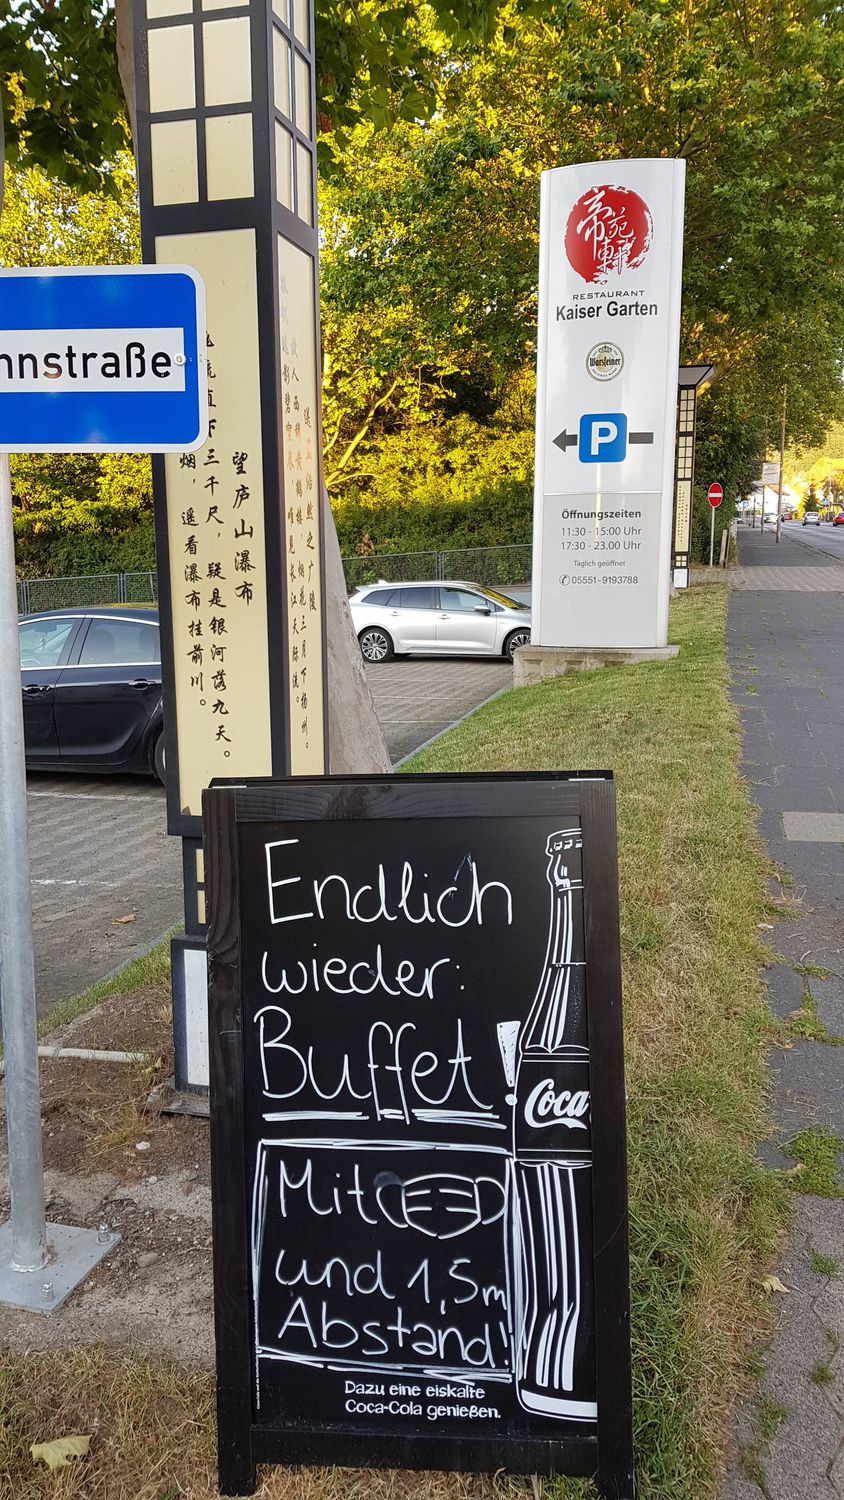 nnstraße
望庐山瀑布
三千尺，疑是银河落九天。
烟，遥看瀑布挂前川。
送孟浩然之广陵
故人西辞黄鹤楼，烟花三月下扬州。
孤帆远影碧空尽，唯见长江天际流。
帝苑軒
RESTAURANT
Kaiser Garten
Warsteiner
P
Öffnungszeiten
11:30 - 15:00 Uhr
17:30 - 23.00 Uhr
Täglich geöffnet
05551-9193788
Endlich
wieder:
Buffet!
Mit
und 1,5m
Abstand!
Coca
Dazu eine eiskalte
Coca-Cola genießen.